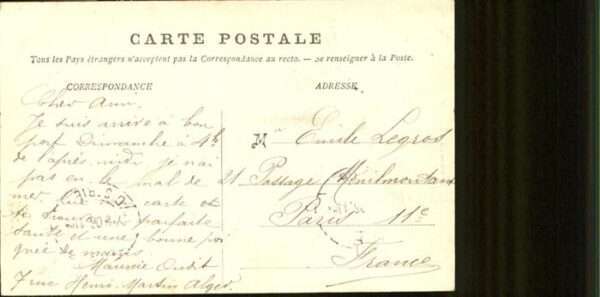 CARTE POSTALE
Tous les Pays étrangers n'acceptent pas la Correspondance au recto. — Se renseigner à la Poste.
CORRESPONDANCE
ADRESSE
Cher Ami.
Je suis arrivé à bon
port Dimanche à 4h
de l'après midi je n'ai
pas eu le mal de
mer. carte et
te trouve en parfaite
santé et une bonne poi
gnée de mains
Maurice
7 rue Henri-Martin Alger.
M Emile Legros
21 Passage Ménilmontant
Paris 11e
France